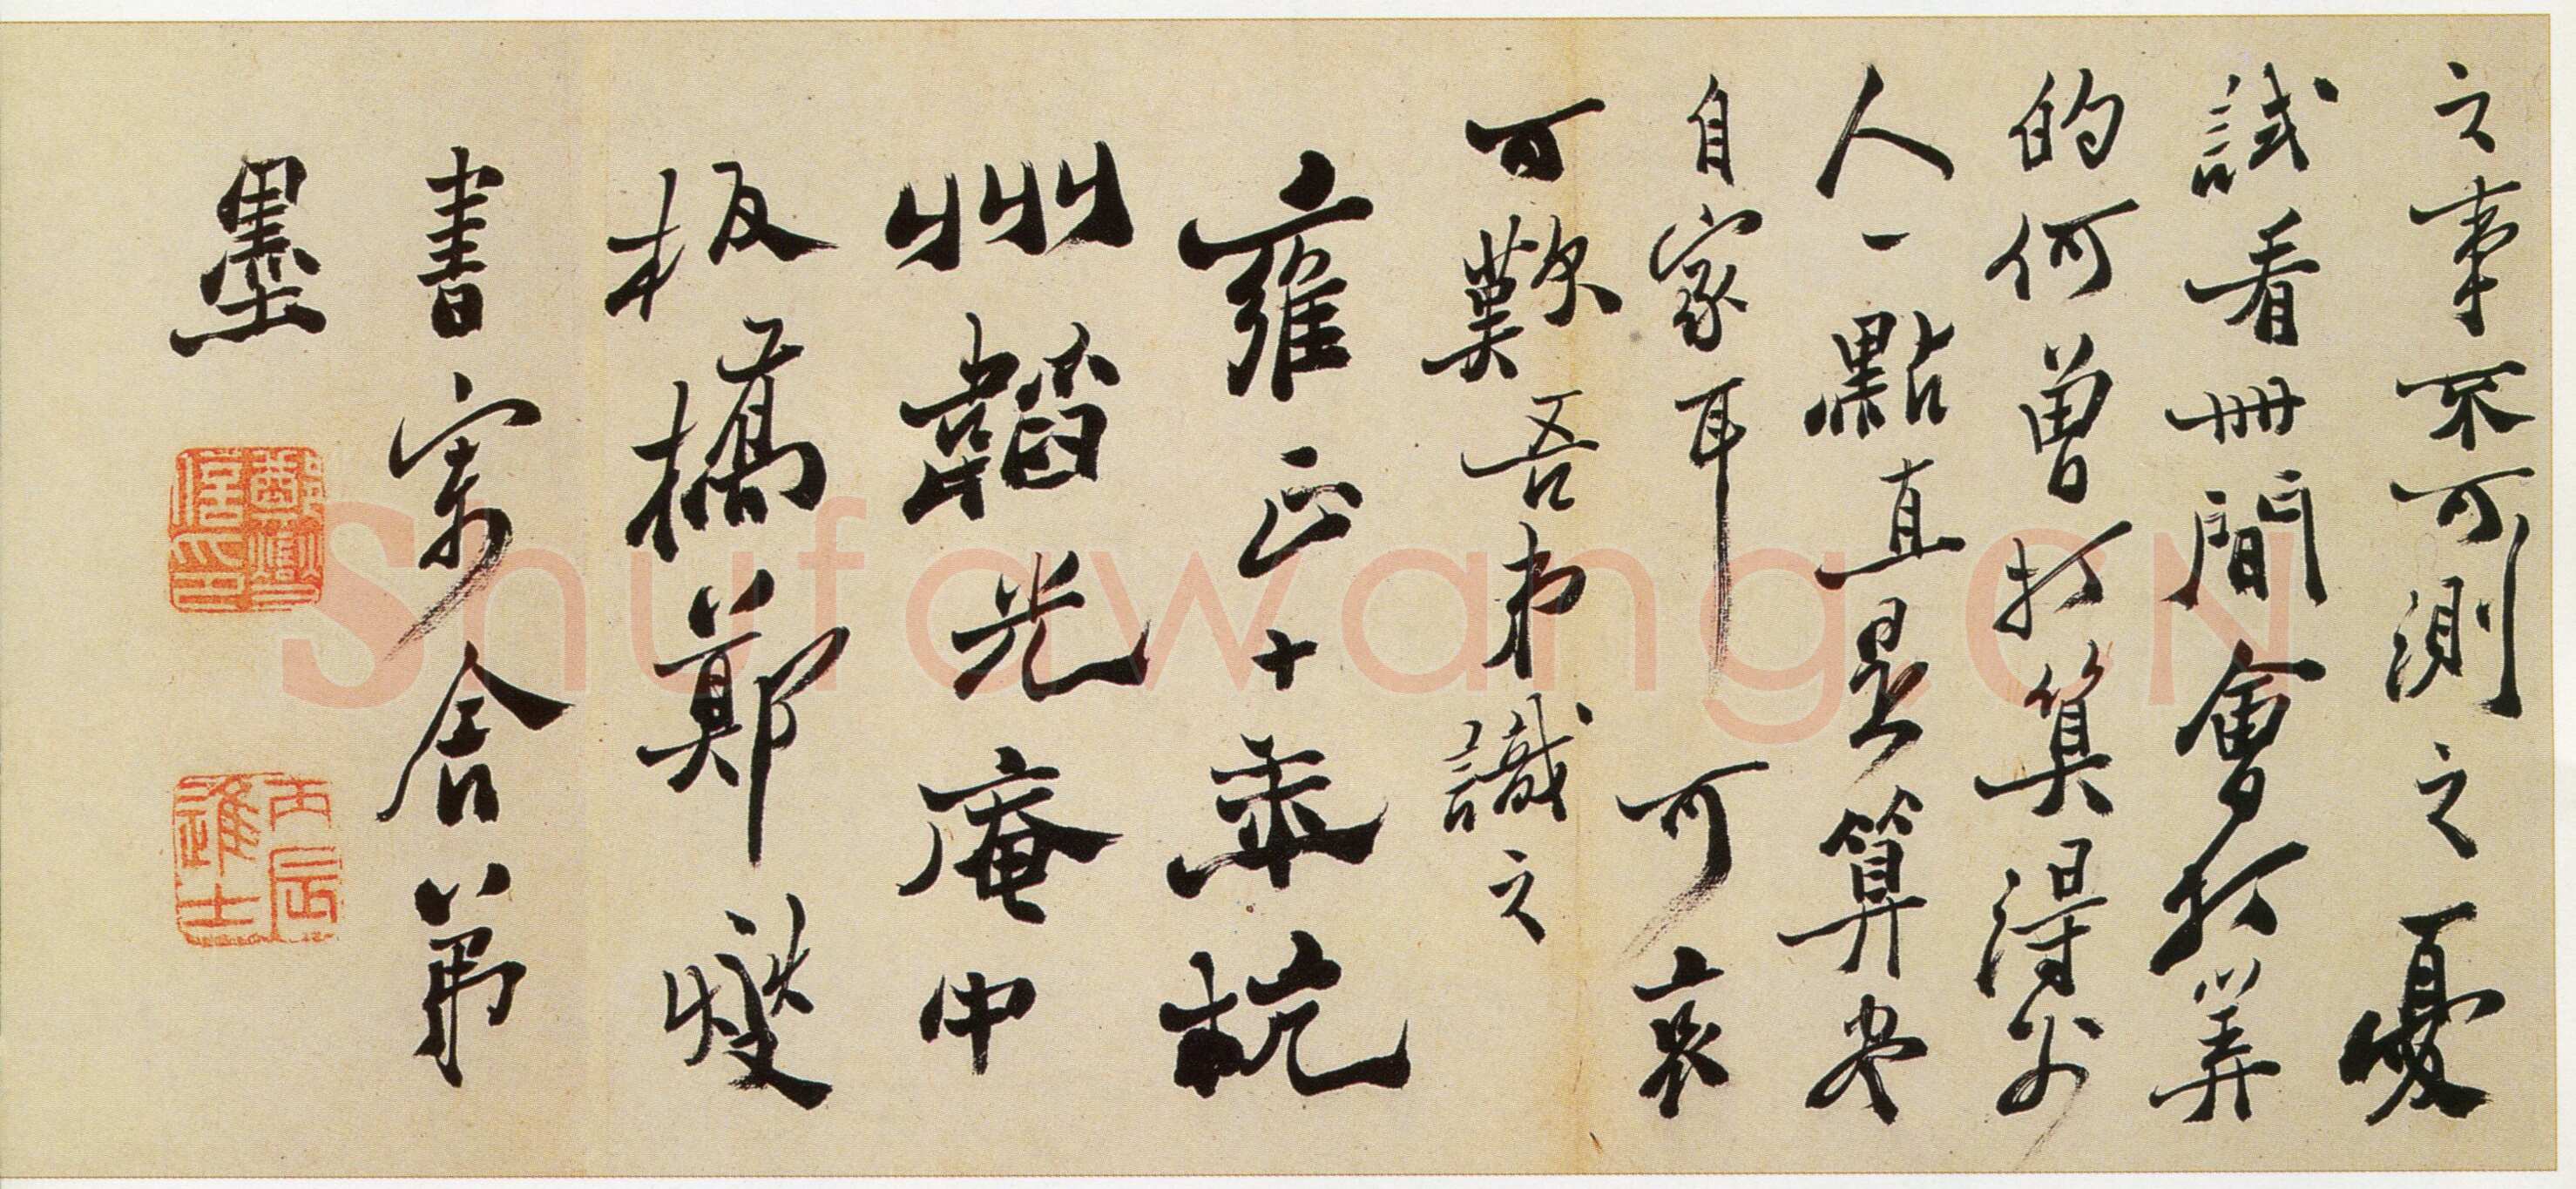 之事不可測之憂
試看世間會打算
的何曾打算得別
人一點直是算盡
自家耳可哀
可歎吾弟識之
雍正十年杭
州韜光庵中
板橋鄭燮
書寄舍弟
墨
鄭燮信印
丙辰進士
Shufawang.CN